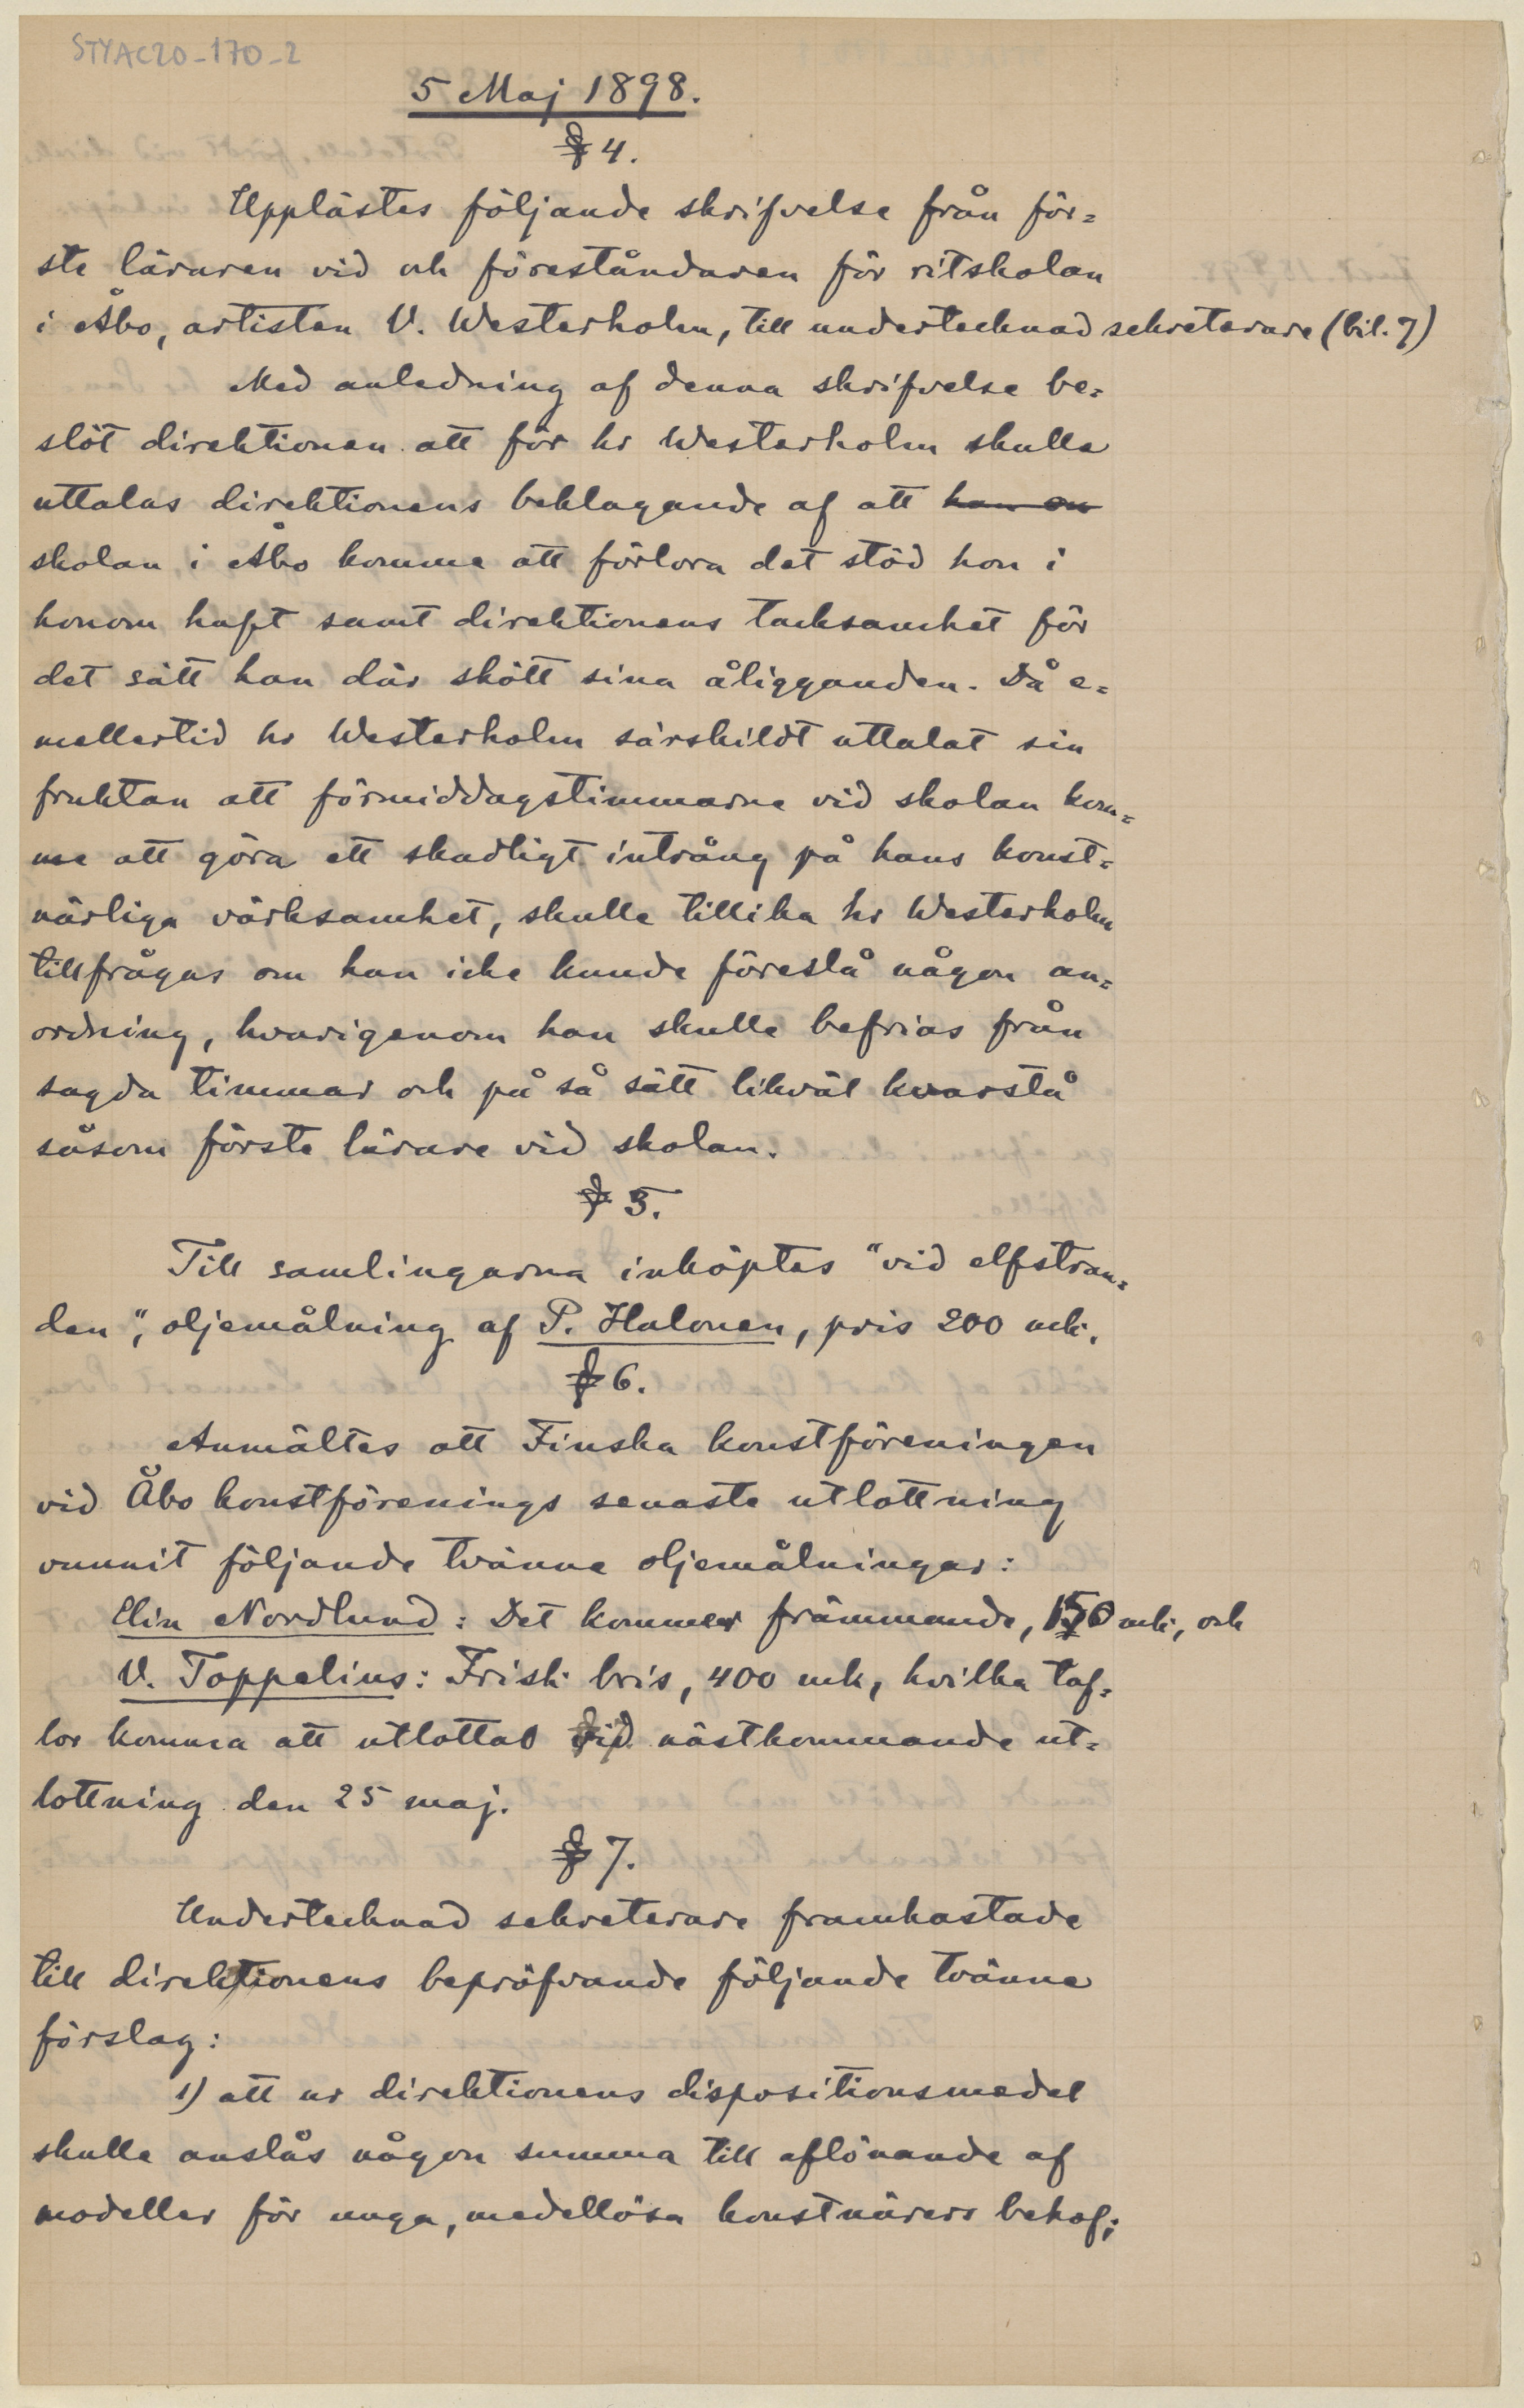 STYAC20-170-2
5 Maj 1898.
§ 4.
Upplästes följande skrifvelse från för=
ste läraren vid och föreståndaren för ritskolan
i Åbo, artisten V. Westerholm, till undertecknad sekreterare (bil. 7)
Med anledning af denna skrifvelse be=
slöt direktionen att för hr Westerholm skulle
uttalas direktionens beklagande af att
skolan i Åbo komme att förlora det stöd hon i
honom haft samt direktionens tacksamhet för
det sätt han där skött sina åligganden. Då e=
mellertid hr Westerholm särskildt uttalat sin
fruktan att förmiddagstimmarne vid skolan kom=
me att göra ett skadligt intrång på hans konst=
närliga värksamhet, skulle tillika hr Westerholm
tillfrågas om han icke kunde föreslå någon an=
ordning, hvarigenom han skulle befrias från
sagda timmar och på så sätt likväl kvarstå
såsom förste lärare vid skolan.
§ 5.
Till samlingarna inköptes "vid elfstran=
den", oljemålning af P. Halonen, pris 200 mk.
§ 6.
Anmältes att Finska konstföreningen
vid Åbo konstförenings senaste utlottning
vunnit följande tvänne oljemålningar:
Elin Nordlund: Det kommer främmande, 150 mk, och
V. Toppelius: Frisk bris, 400 mk, hvilka taf=
lor komma att utlottas vid nästkommande ut=
lottning den 25 maj.
§ 7.
Undertecknad sekreterare framkastade
till direktionens bepröfvande följande tvänne
förslag:
1) att ur direktionens dispositionsmedel
skulle anslås någon summa till aflönande af
modeller för unga, medellösa konstnärers behof;